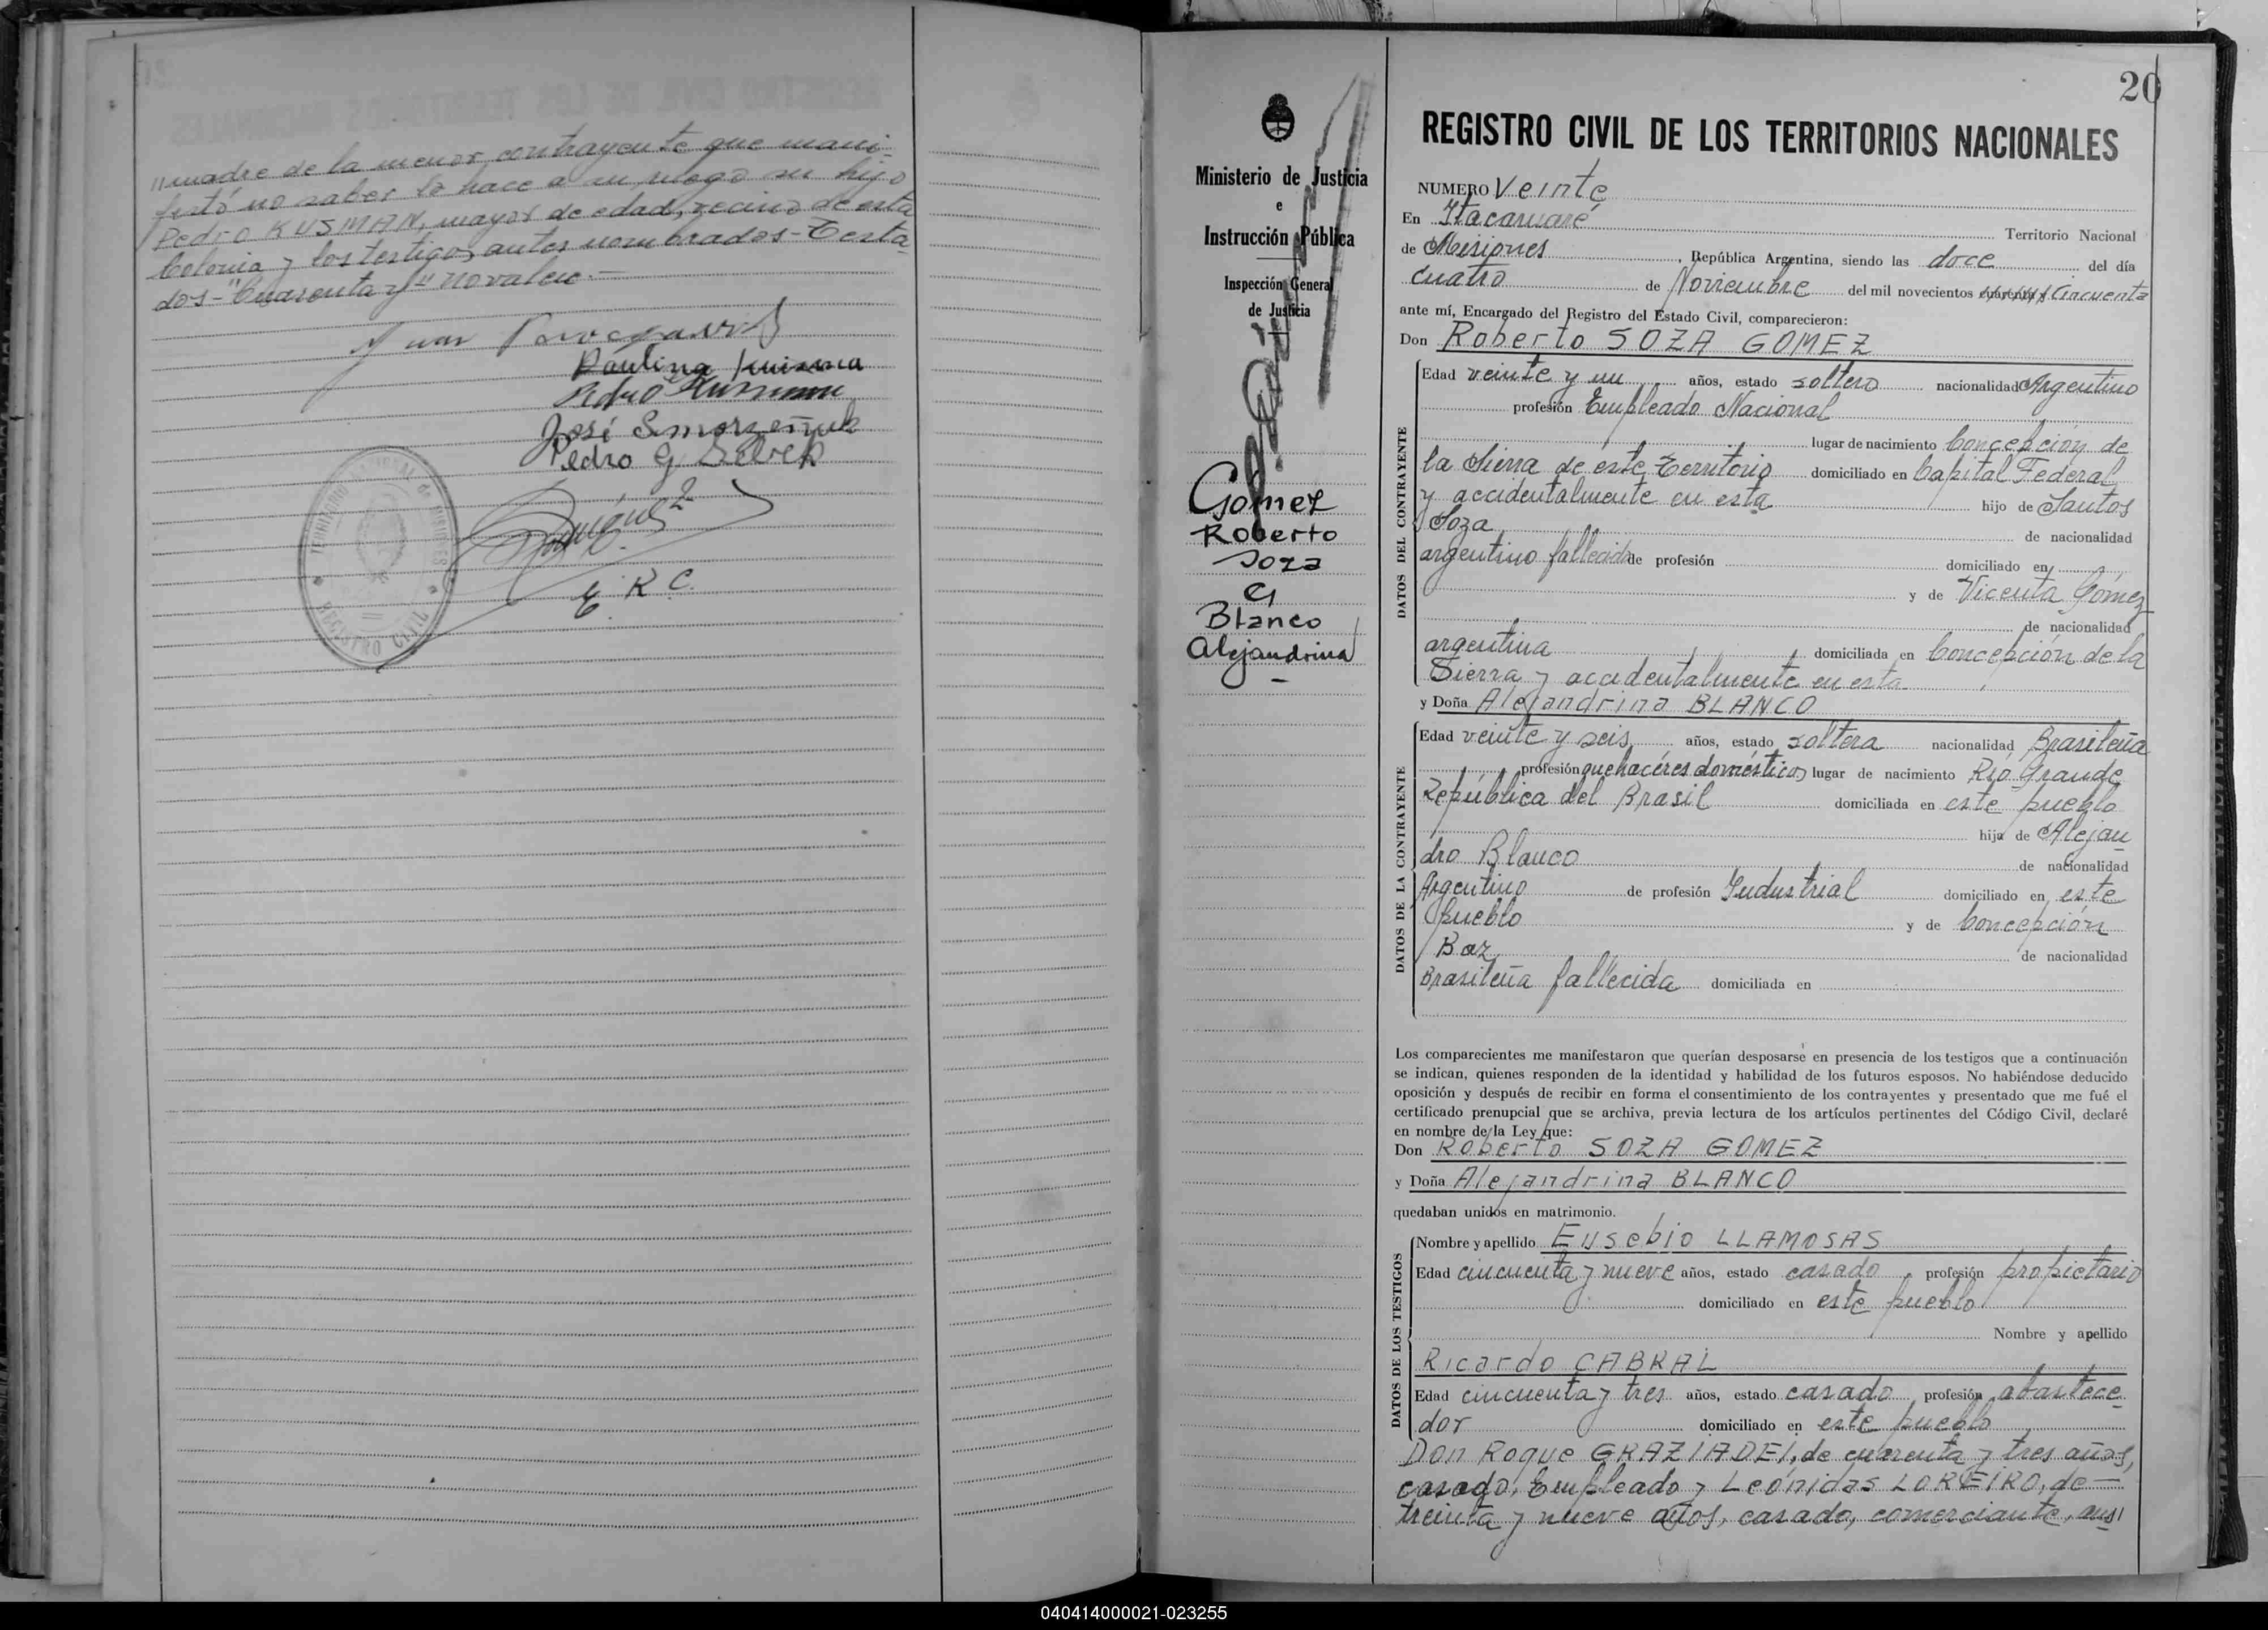 "madre de la menor contrayente que mani-
festó no saber lo hace a su ruego su hijo
Pedro KUSMAN, mayor de edad, vecino de esta
Colonia y los testigos antes nombrados- Testa
dos- "Cuarenta y" no valen.-
Juan
Paulina
Pedro Kusmann
José
Pedro G.
E. R. C.
TERRITORIO NACIONAL de MISIONES
REGISTRO CIVIL
20
Ministerio de Justicia
e
Instrucción Pública
Inspección General
de Justicia
Gomez
Roberto
Soza
C/
Blanco
Alejandrina
REGISTRO CIVIL DE LOS TERRITORIOS NACIONALES
NUMERO Veinte
En Itacaruaré Territorio Nacional
de Misiones, República Argentina, siendo las doce del día
cuatro de Noviembre del mil novecientos cuarenta y Cincuenta
ante mí, Encargado del Registro del Estado Civil, comparecieron:
Don Roberto SOZA GOMEZ
DATOS DEL CONTRAYENTE
Edad veinte y un años, estado soltero nacionalidad Argentino
profesión Empleado Nacional
lugar de nacimiento Concepción de
la Sierra de este Territorio domiciliado en Capital Federal
y accidentalmente en esta hijo de Santos
Soza de nacionalidad
argentino fallecido de profesión domiciliado en
y de Vicenta Gómez
de nacionalidad
argentina domiciliada en Concepción de la
Sierra y accidentalmente en esta
y Doña Alejandrina BLANCO
DATOS DE LA CONTRAYENTE
Edad veinte y seis años, estado soltera nacionalidad Brasileña
profesión quehacéres domésticos lugar de nacimiento Río Grande
República del Brasil domiciliada en este pueblo
hija de Alejan
dro Blanco de nacionalidad
Argentino de profesión Industrial domiciliado en este
pueblo y de Concepción
Baz de nacionalidad
Brasileña fallecida domiciliada en
Los comparecientes me manifestaron que querían desposarse en presencia de los testigos que a continuación
se indican, quienes responden de la identidad y habilidad de los futuros esposos. No habiéndose deducido
oposición y después de recibir en forma el consentimiento de los contrayentes y presentado que me fué el
certificado prenupcial que se archiva, previa lectura de los artículos pertinentes del Código Civil, declaré
en nombre de la Ley que:
Don Roberto SOZA GOMEZ
y Doña Alejandrina BLANCO
quedaban unidos en matrimonio.
DATOS DE LOS TESTIGOS
Nombre y apellido Eusebio LLAMOSAS
Edad cincuenta y nueve años, estado casado, profesión propietario
domiciliado en este pueblo
Nombre y apellido
Ricardo CABRAL
Edad cincuenta y tres años, estado casado, profesión abastece
dor domiciliado en este pueblo
Don Roque GRAZIADEI, de cuarenta y tres años,
casado, Empleado y Leónidas LOREIRO, de—
treinta y nueve años, casado, comerciante, ans/
040414000021-023255